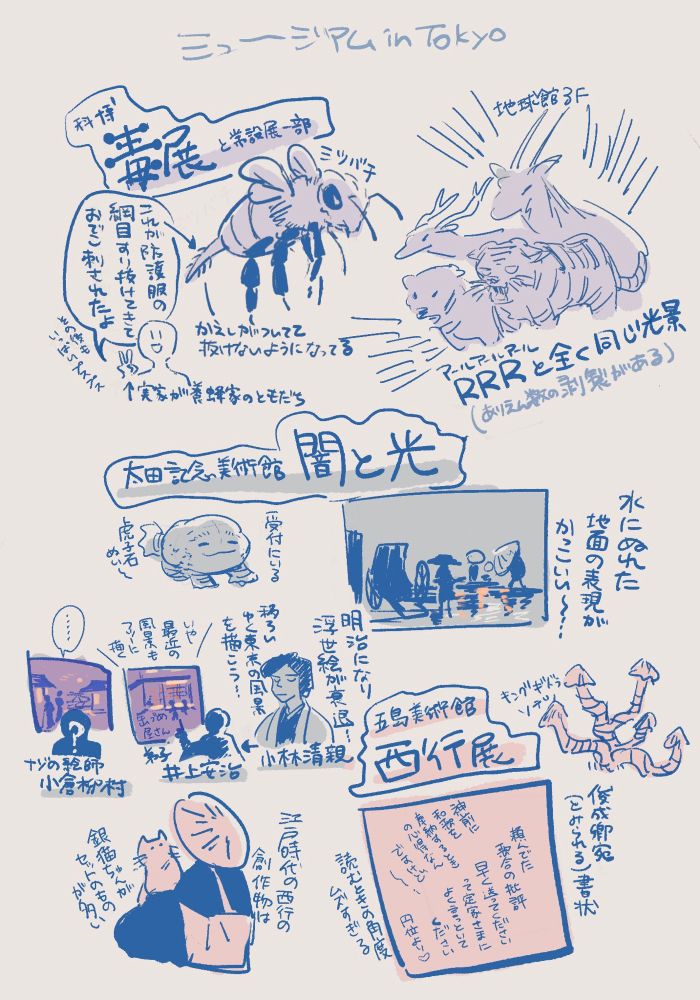 ミュージアム in Tokyo
科博
毒展
と常設展一部
ミツバチ
これが防護服の
網目すり抜けてきて
おでこ刺されたよ
かえしがついてて
抜けないようになってる
↑実家が養蜂家のともだち
地球館3F
アールアールアール
RRRと全く同じ光景
(ありえん数の剥製がある)
太田記念美術館
闇と光
受付にいる
虎子石
ぬい〜
水にぬれた
地面の表現が
かっこいい〜!
明治になり
浮世絵が衰退…!
移ろい
ゆく東京の風景
を描こう…
小林清親
いや
最近の
風景も
弟子
井上安治
……
?
ナゾの絵師
小倉柳村
五島美術館
西行展
キングギドラ
ソテツ
俊成卿宛
(とみられる)書状
頼んでた
歌合の批評
早く送ってください
って定家さまに
よく言っといて
ください
円位より♡
神前に
和歌を
奉納するとき
の心得なん
読むときの角度
ムズすぎる
江戸時代の西行の
創作物は
銀猫ちゃんが
セットのもの
が多い